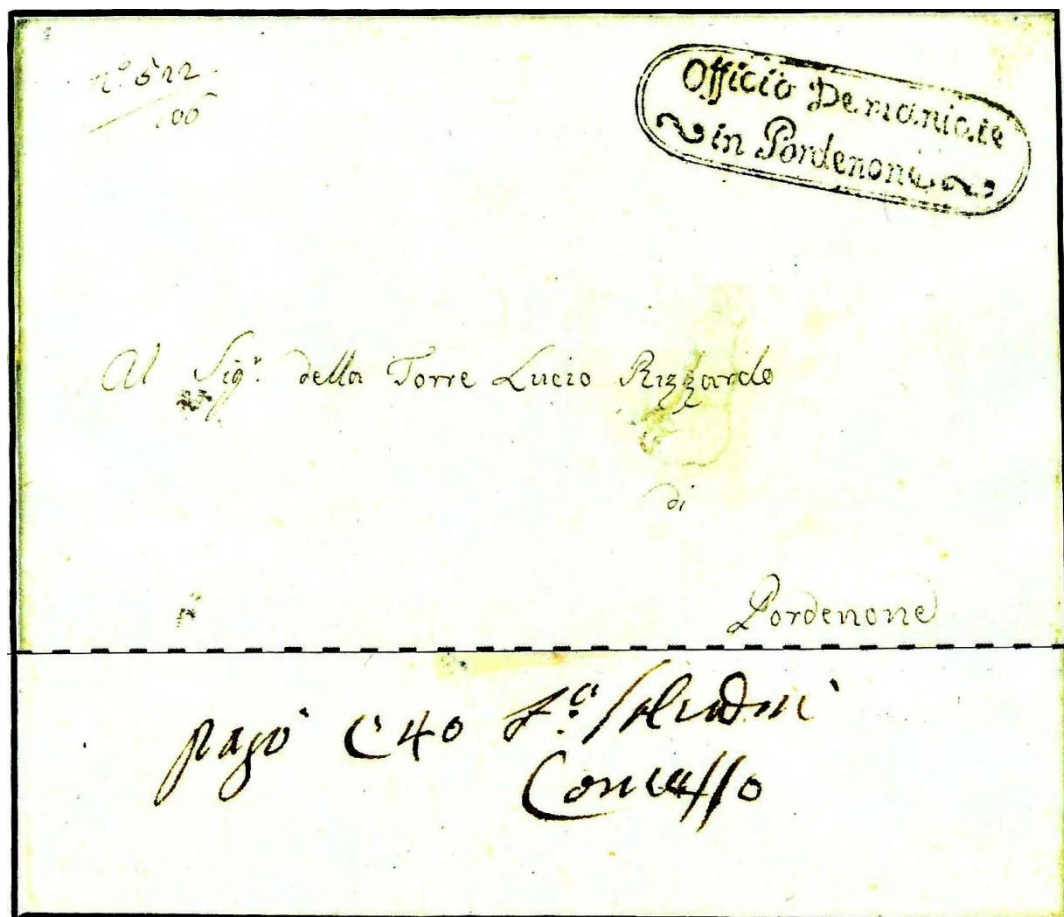 N.º 522
Officio Demaniale
in Pordenone
Al Sigr. della Torre Lucio Rizzardo
di
Pordenone
pagò C 40